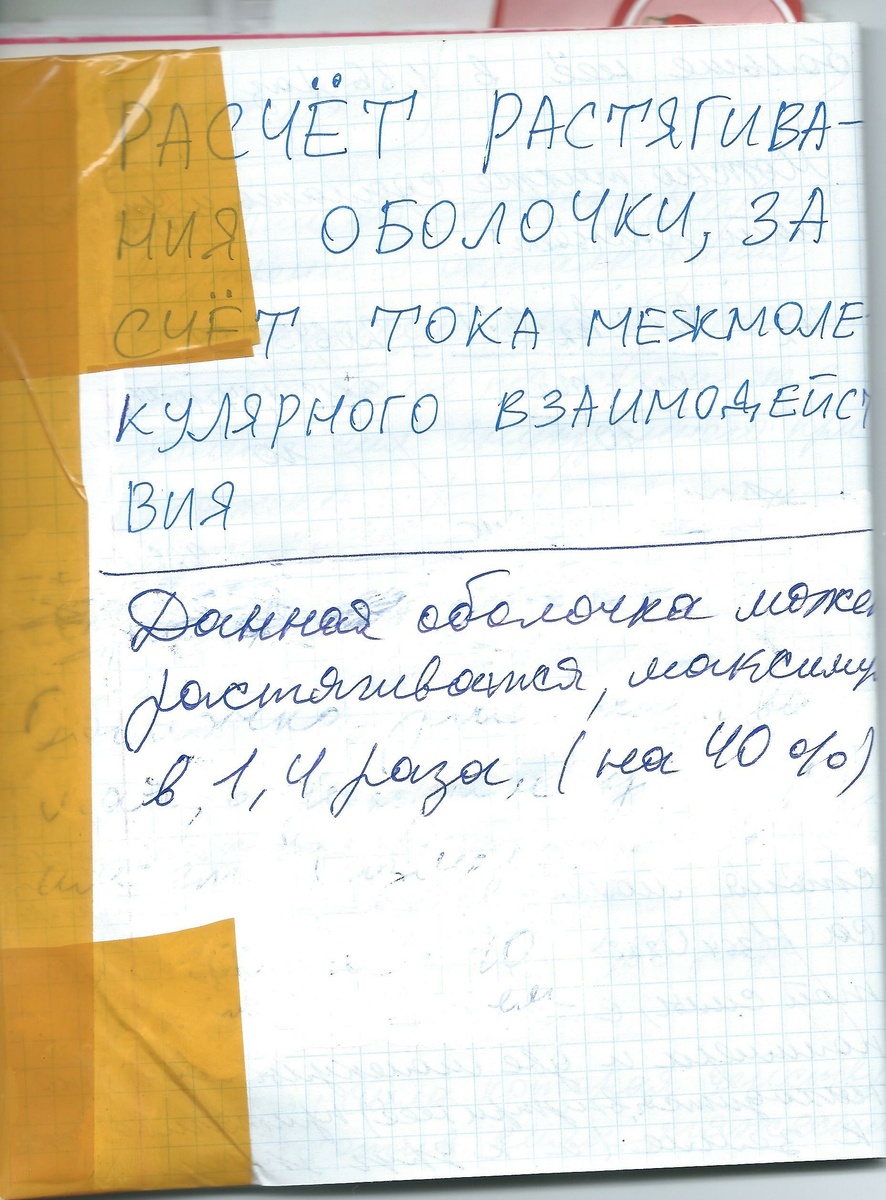 РАСЧЁТ РАСТЯГИВА-
НИЯ ОБОЛОЧКИ, ЗА
СЧЁТ ТОКА МЕЖМОЛЕ-
КУЛЯРНОГО ВЗАИМОДЕЙСТ
ВИЯ
Данная оболочка може
растягиватся, максиму
в 1,4 раза, (на 40%)